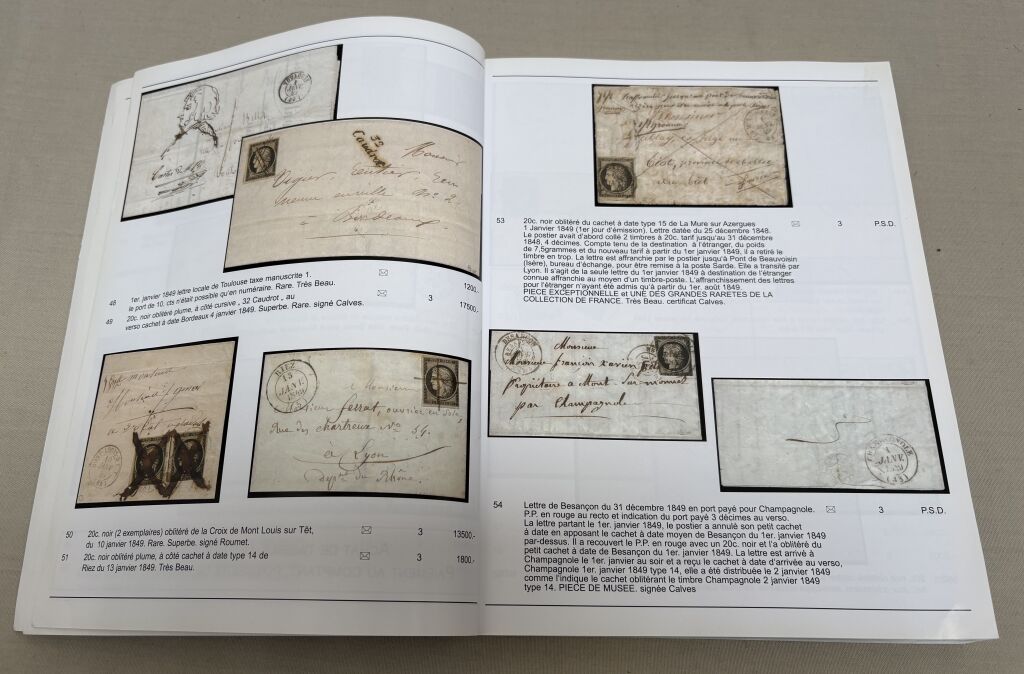 TOULOUSE
1
JANV.
32
Caudrot
Monsieur
Bordeaux
48 1er. janvier 1849 lettre locale de Toulouse taxe manuscrite 1.
le port de 10. cts n'était possible qu'en numéraire. Rare. Très Beau. 1200,-
49 20c. noir oblitéré plume, à côté cursive „ 32 Caudrot „ au
verso cachet à date Bordeaux 4 janvier 1849. Superbe. Rare. signé Calves. 3 17500,-
RIEZ
13
JANV.
1849
Monsieur ferrat, ouvrier en soie,
Rue des chartreux No. 34.
à Lyon
Dept. du Rhône.
50 20c. noir (2 exemplaires) oblitéré de la Croix de Mont Louis sur Têt,
du 10 janvier 1849. Rare. Superbe. signé Roumet. 3 13500,-
51 20c. noir oblitéré plume, à côté cachet à date type 14 de
Riez du 13 janvier 1849. Très Beau. 3 1800,-
Monsieur
53 20c. noir oblitéré du cachet à date type 15 de La Mure sur Azergues 3 P.S.D.
1 Janvier 1849 (1er jour d'émission). Lettre datée du 25 décembre 1848.
Le postier avait d'abord collé 2 timbres à 20c, tarif jusqu'au 31 décembre
1848, 4 décimes. Compte tenu de la destination à l'étranger, du poids
de 7,5grammes et du nouveau tarif à partir du 1er janvier 1849, il a remis le
timbre en trop. La lettre est affranchie par le postier jusqu'à Pont de Beauvoisin
(Isère), bureau d'échange, pour être remise à la poste Sarde. Elle a transité par
Lyon. Il s'agit de la seule lettre du 1er janvier 1849 à destination de l'étranger
connue affranchie au moyen d'un timbre-poste. L'affranchissement des lettres
pour l'étranger n'ayant été admis qu'à partir du 1er. août 1849.
PIECE EXCEPTIONNELLE et UNE DES GRANDES RARETES DE LA
COLLECTION DE FRANCE. Très Beau. certificat Calves.
BESANÇON
Monsieur
Monsieur francois xavier
propriétaire a Mont sur monnet
par Champagnole
CHAMPAGNOLE
1
JANV.
1849
54 Lettre de Besançon du 31 décembre 1849 en port payé pour Champagnole. 3 P.S.D.
P.P. en rouge au recto et indication du port payé 3 décimes au verso.
La lettre partant le 1er. janvier 1849, le postier a annulé son petit cachet
à date en apposant le cachet à date moyen de Besançon du 1er. janvier 1849
par-dessus. Il a recouvert le P.P. en rouge avec un 20c. noir et l'a oblitéré du
petit cachet à date de Besançon du 1er. janvier 1849. La lettre est arrivée à
Champagnole le 1er. janvier au soir et a reçu le cachet à date d'arrivée au verso,
Champagnole 1er. janvier 1849 type 14, elle a été distribuée le 2 janvier 1849
comme l'indique le cachet oblitérant le timbre Champagnole 2 janvier 1849
type 14. PIECE DE MUSEE. signée Calves